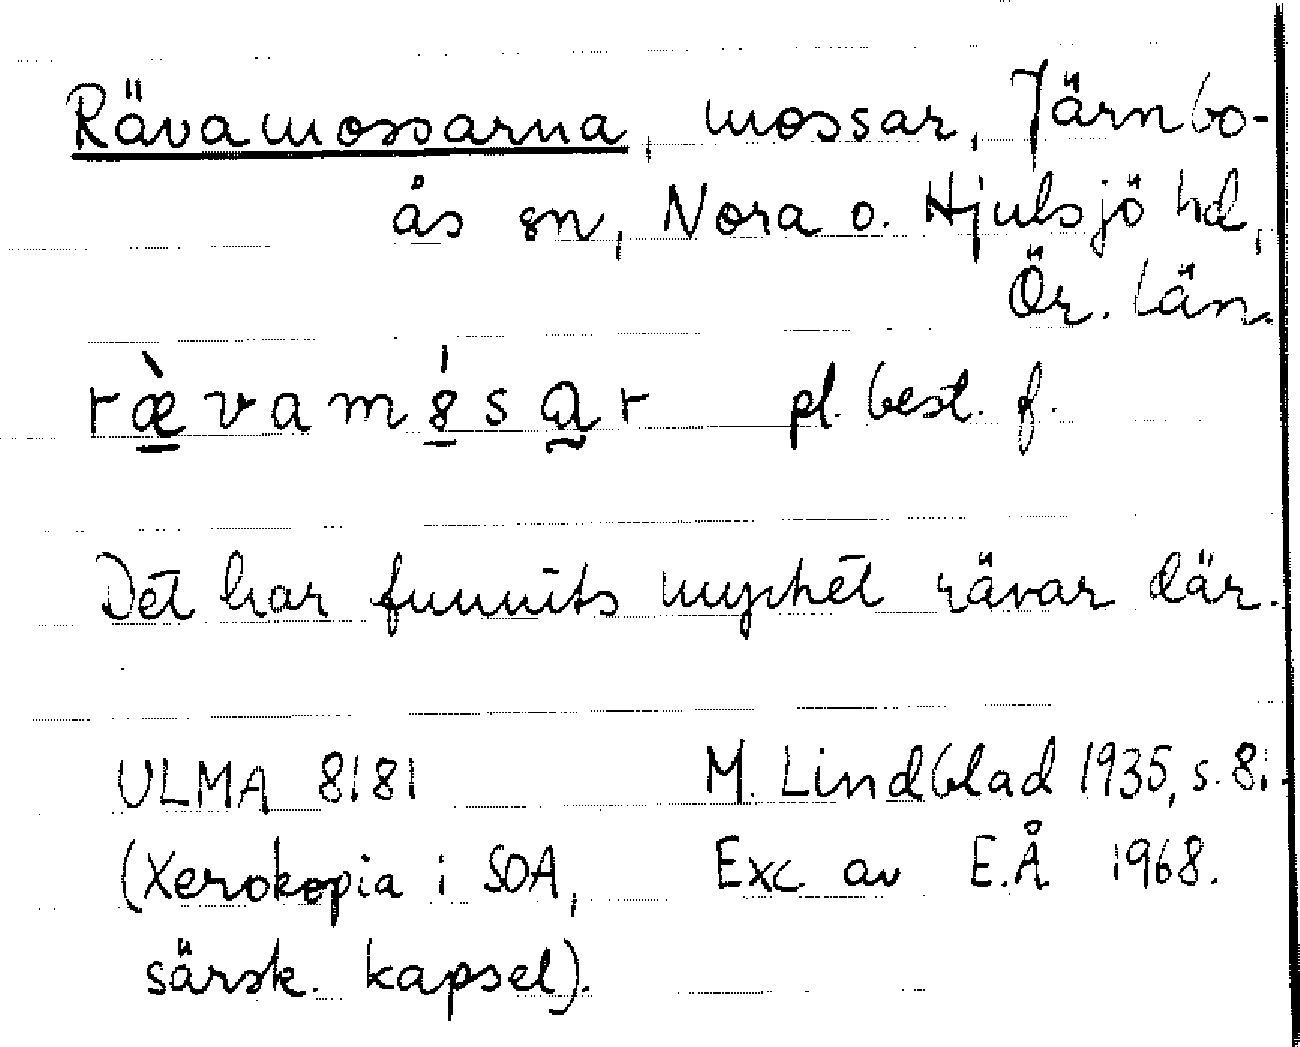 Rävamossarna, mossar, Järnbo-
ås sn, Nora o. Hjulsjö hd,
Ör. län.
ræ̀vamȣ́sar pl. best. f.
Det har funnits mycket rävar där.
ULMA 8181 M. Lindblad 1935, s. 81.
(Xerokopia i SOA, Exc. av E.Å 1968.
särsk. kapsel).